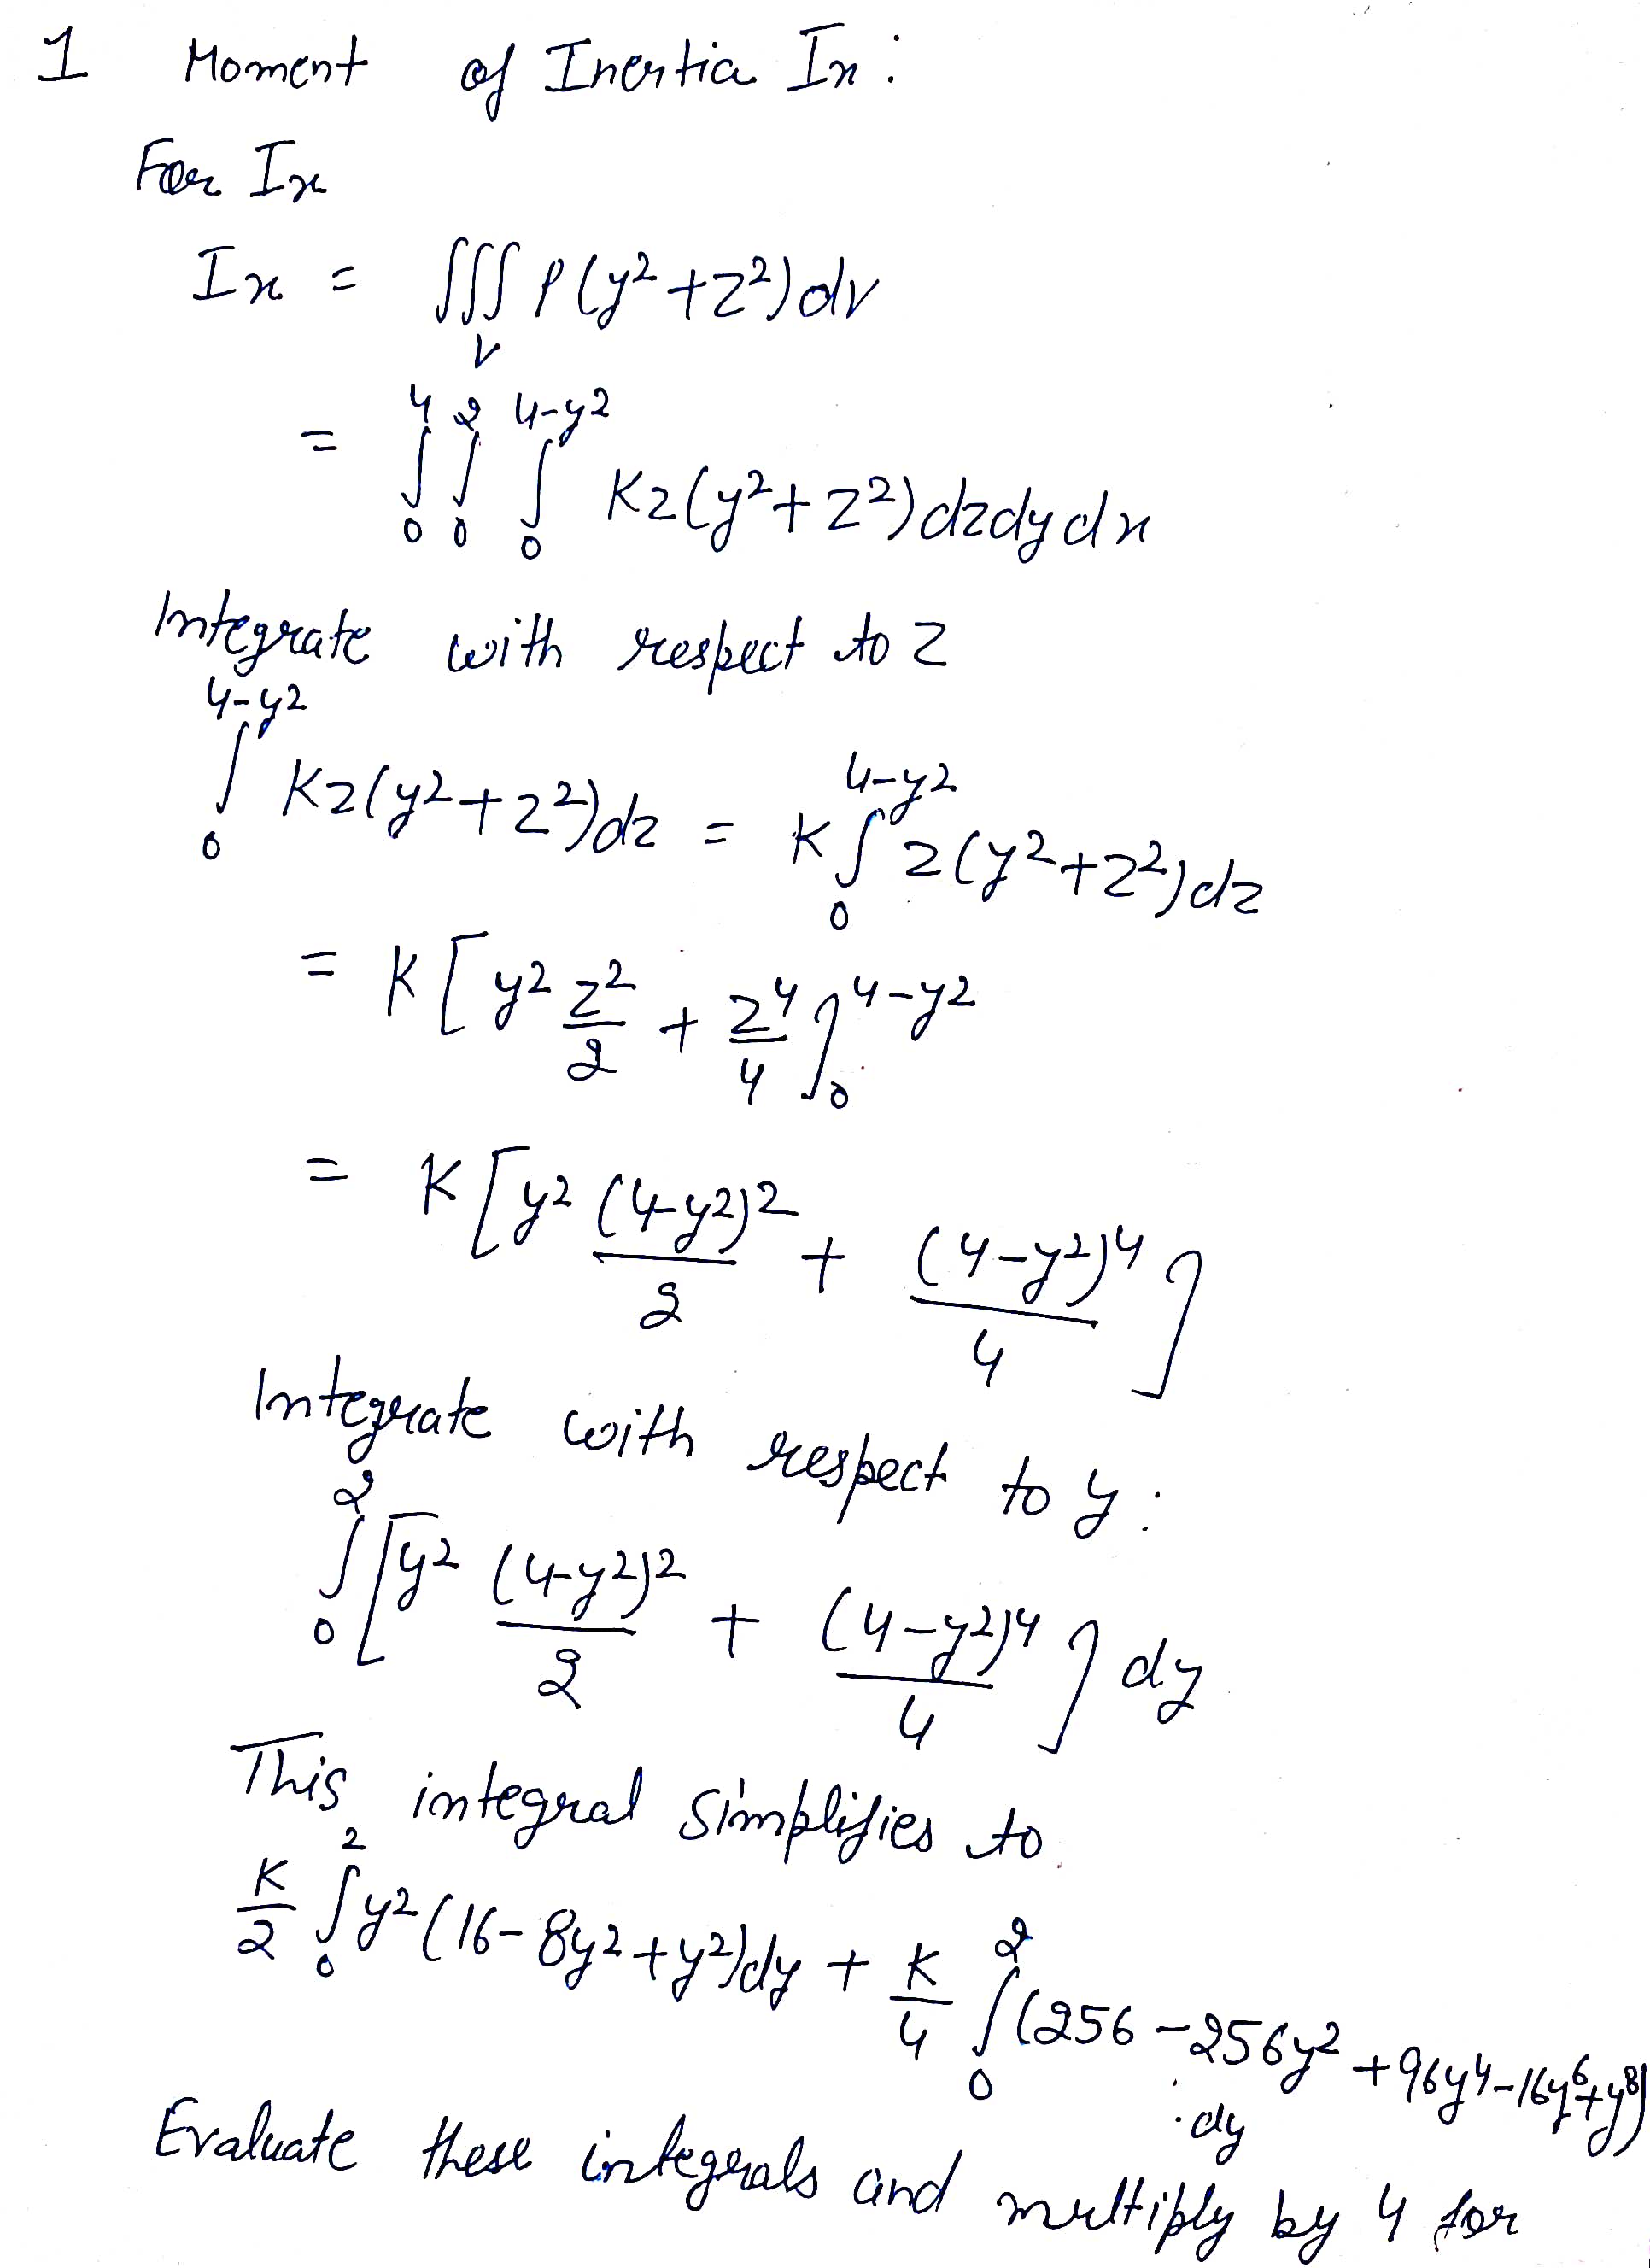 1 Moment of Inertia Ix :
For Ix
Ix = ∭_V ρ(y² + z²) dv
= ∫₀⁴ ∫₀² ∫₀^(4-y²) Kz(y² + z²) dz dy dx
Integrate with respect to z
∫₀^(4-y²) Kz(y² + z²) dz = K ∫₀^(4-y²) z(y² + z²) dz
= K [y² z²/2 + z⁴/4]₀^(4-y²)
= K [y² (4-y²)²/2 + (4-y²)⁴/4]
Integrate with respect to y :
∫₀² [y² (4-y²)²/2 + (4-y²)⁴/4] dy
This integral simplifies to
K/2 ∫₀² y² (16 - 8y² + y²) dy + K/4 ∫₀² (256 - 256y² + 96y⁴ - 16y⁶ + y⁸)
dy
Evaluate these integrals and multiply by 4 for